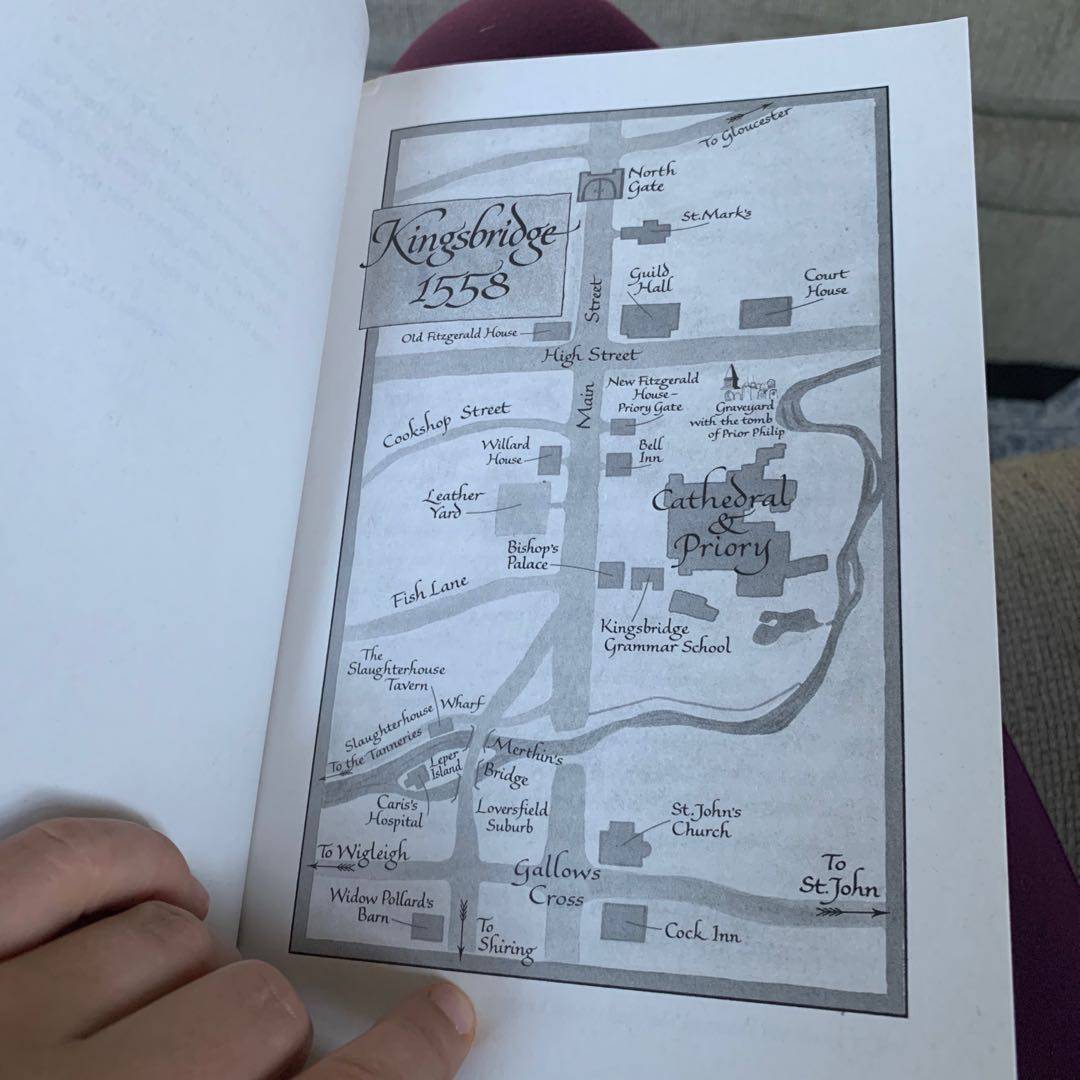 To Gloucester
North
Gate
St. Mark's
Kingsbridge
1558
Guild
Hall
Court
House
Street
Old Fitzgerald House
High Street
Main
New Fitzgerald
House –
Priory Gate
Graveyard
with the tomb
of Prior Philip
Cookshop Street
Willard
House
Bell
Inn
Leather
Yard
Cathedral
&
Priory
Bishop's
Palace
Fish Lane
Kingsbridge
Grammar School
The
Slaughterhouse
Tavern
Slaughterhouse Wharf
To the Tanneries
Leper
Island
Merthin's
Bridge
Caris's
Hospital
Loversfield
Suburb
St. John's
Church
To Wigleigh
Gallows
Cross
To
St. John
Widow Pollard's
Barn
To
Shiring
Cock Inn